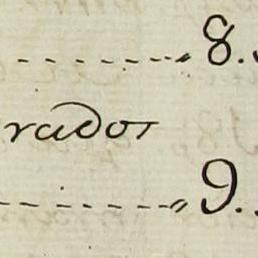 8.
rados
9.